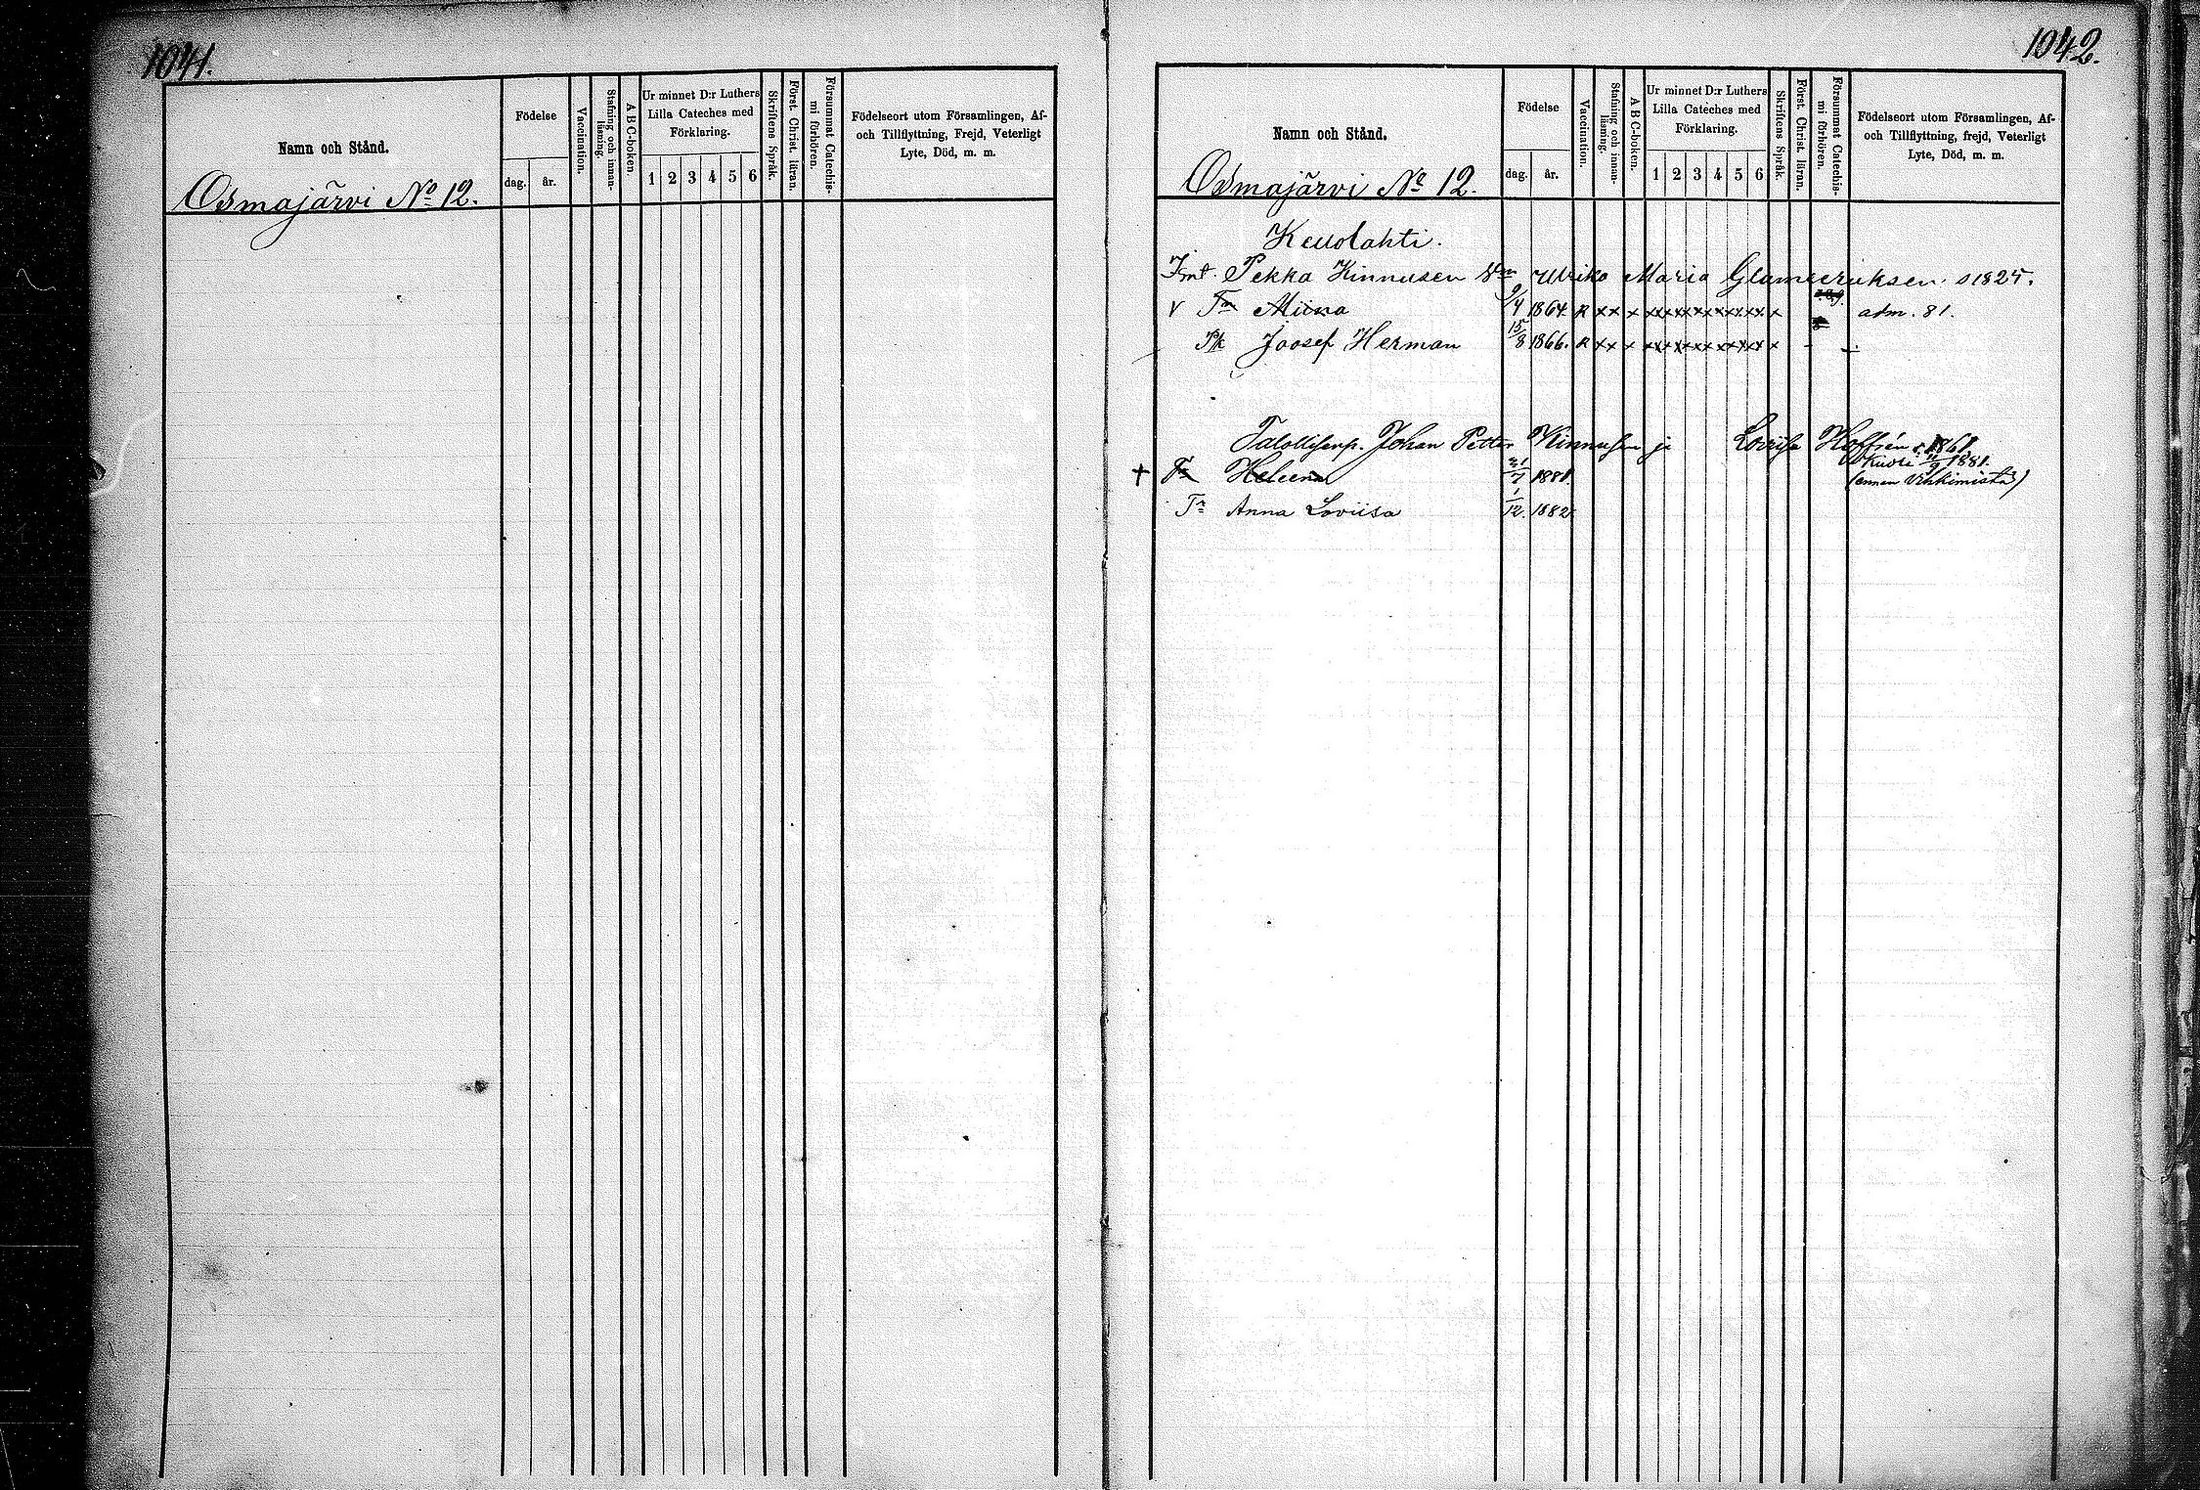 1041.
Namn och Stånd.
Födelse
dag.
år.
Vaccination.
Stafning och innan-
läsning.
A B C-boken.
Ur minnet D:r Luthers
Lilla Cateches med
Förklaring.
1 2 3 4 5 6
Skriftens Språk.
Först. Christ. läran.
Försummat Catechis-
mi förhören.
Födelseort utom Församlingen, Af-
och Tillflyttning, Frejd, Veterligt
Lyte, Död, m. m.
Osmajärvi No 12.
1042.
Namn och Stånd.
Födelse
dag.
år.
Vaccination.
Stafning och innan-
läsning.
A B C-boken.
Ur minnet D:r Luthers
Lilla Cateches med
Förklaring.
1 2 3 4 5 6
Skriftens Språk.
Först. Christ. läran.
Försummat Catechis-
mi förhören.
Födelseort utom Församlingen, Af-
och Tillflyttning, frejd, Veterligt
Lyte, Död, m. m.
Osmajärvi No 12.
Kellolahti.
Pekka Kinnusen Maria s 1825.
v Tr Miina 9/4 1864. R xx x xx xx xx xx xx xx x adm. 81.
Pk Joosef Herman 15/8 1866. R xx x xx xx xx xx xx xx x
Johan Petter Kinnusen ja Lovisa
+ Tr Heleena 1881. Kuoli 1881.
(ennen vihkimistä)
Tr Anna Loviisa 1/12. 1882.